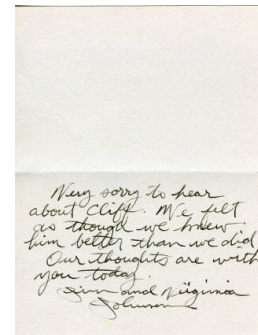 Very sorry to hear
about Cliff. We felt
as though we knew
him better than we did
Our thoughts are with
you today.
and Virginia
Johnson